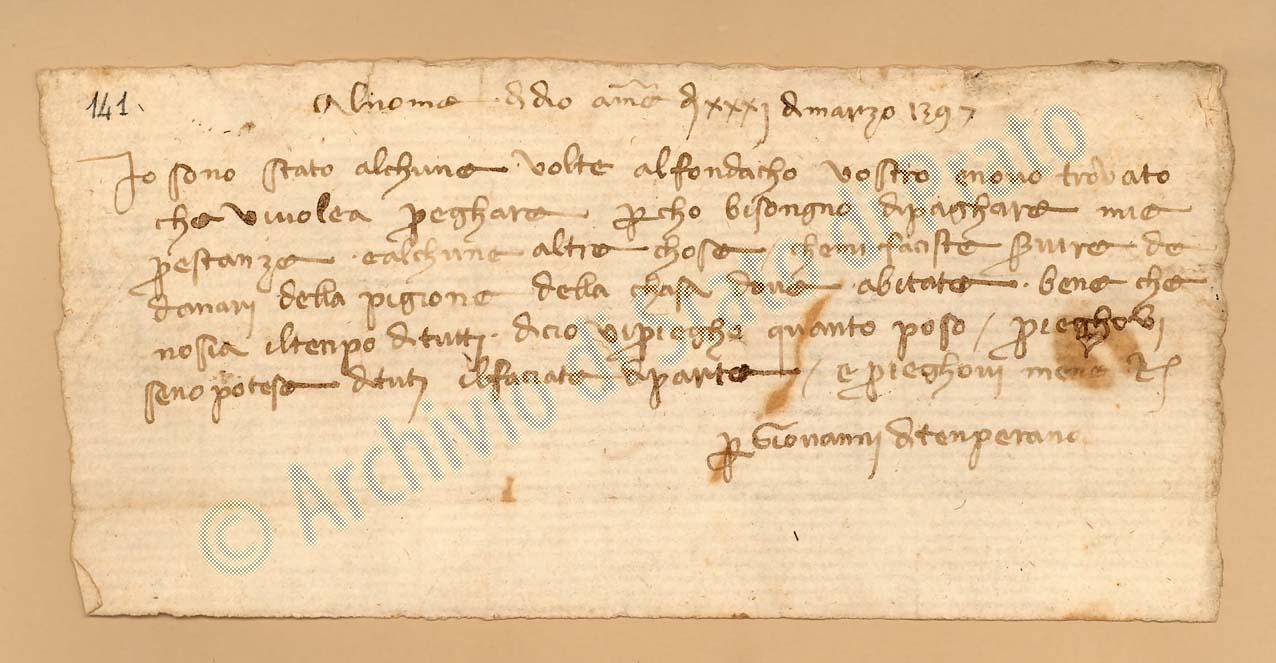 141
Al nome di dio ame dì xxxj di marzo 1397
Io sono stato alchune volte al fondacho vostro e no vo trovato
che vi volea preghare perch o bisongno di paghare mie
prestanze e alchune altre chose che mi faciste servire de
danari della pigione della chasa dove abitate bene che
no sia il tenpo di tutti di cio vi prieghe quanto poso / prieghovi
se no potese di tutj il faciate di parte / e prieghovi mene
per Giovanni di tenperano
© Archivio di Stato di Prato